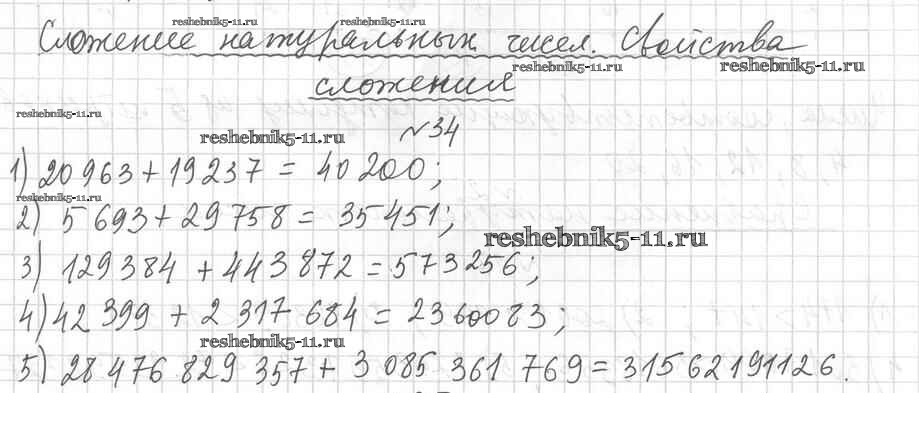 reshebnik5-11.ru reshebnik5-11.ru
Сложение натуральных чисел. Свойства
reshebnik5-11.ru reshebnik5-11.ru
сложения
reshebnik5-11.ru
reshebnik5-11.ru
№34
1) 20 963 + 19 237 = 40 200;
reshebnik5-11.ru
2) 5 693 + 29 758 = 35 451;
reshebnik5-11.ru
3) 129 384 + 443 872 = 573 256;
4) 42 399 + 2 317 684 = 2360083;
reshebnik5-11.ru
5) 28 476 829 357 + 3 085 361 769 = 31562191126.